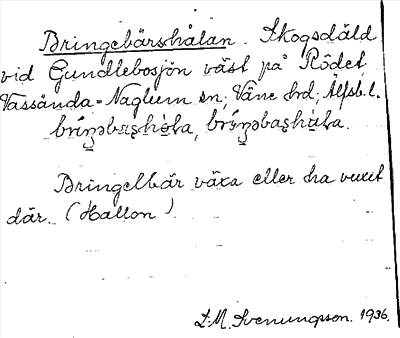 Bringebärshålan. Skogsdäld
vid Gundlebosjön väst på Rödet,
Vassända-Naglum sn, Väne hrd, Älfsb. l.
Bringelbär växa eller ha vuxit
där. (Hallon).
L.M. Svenungsson. 1936.